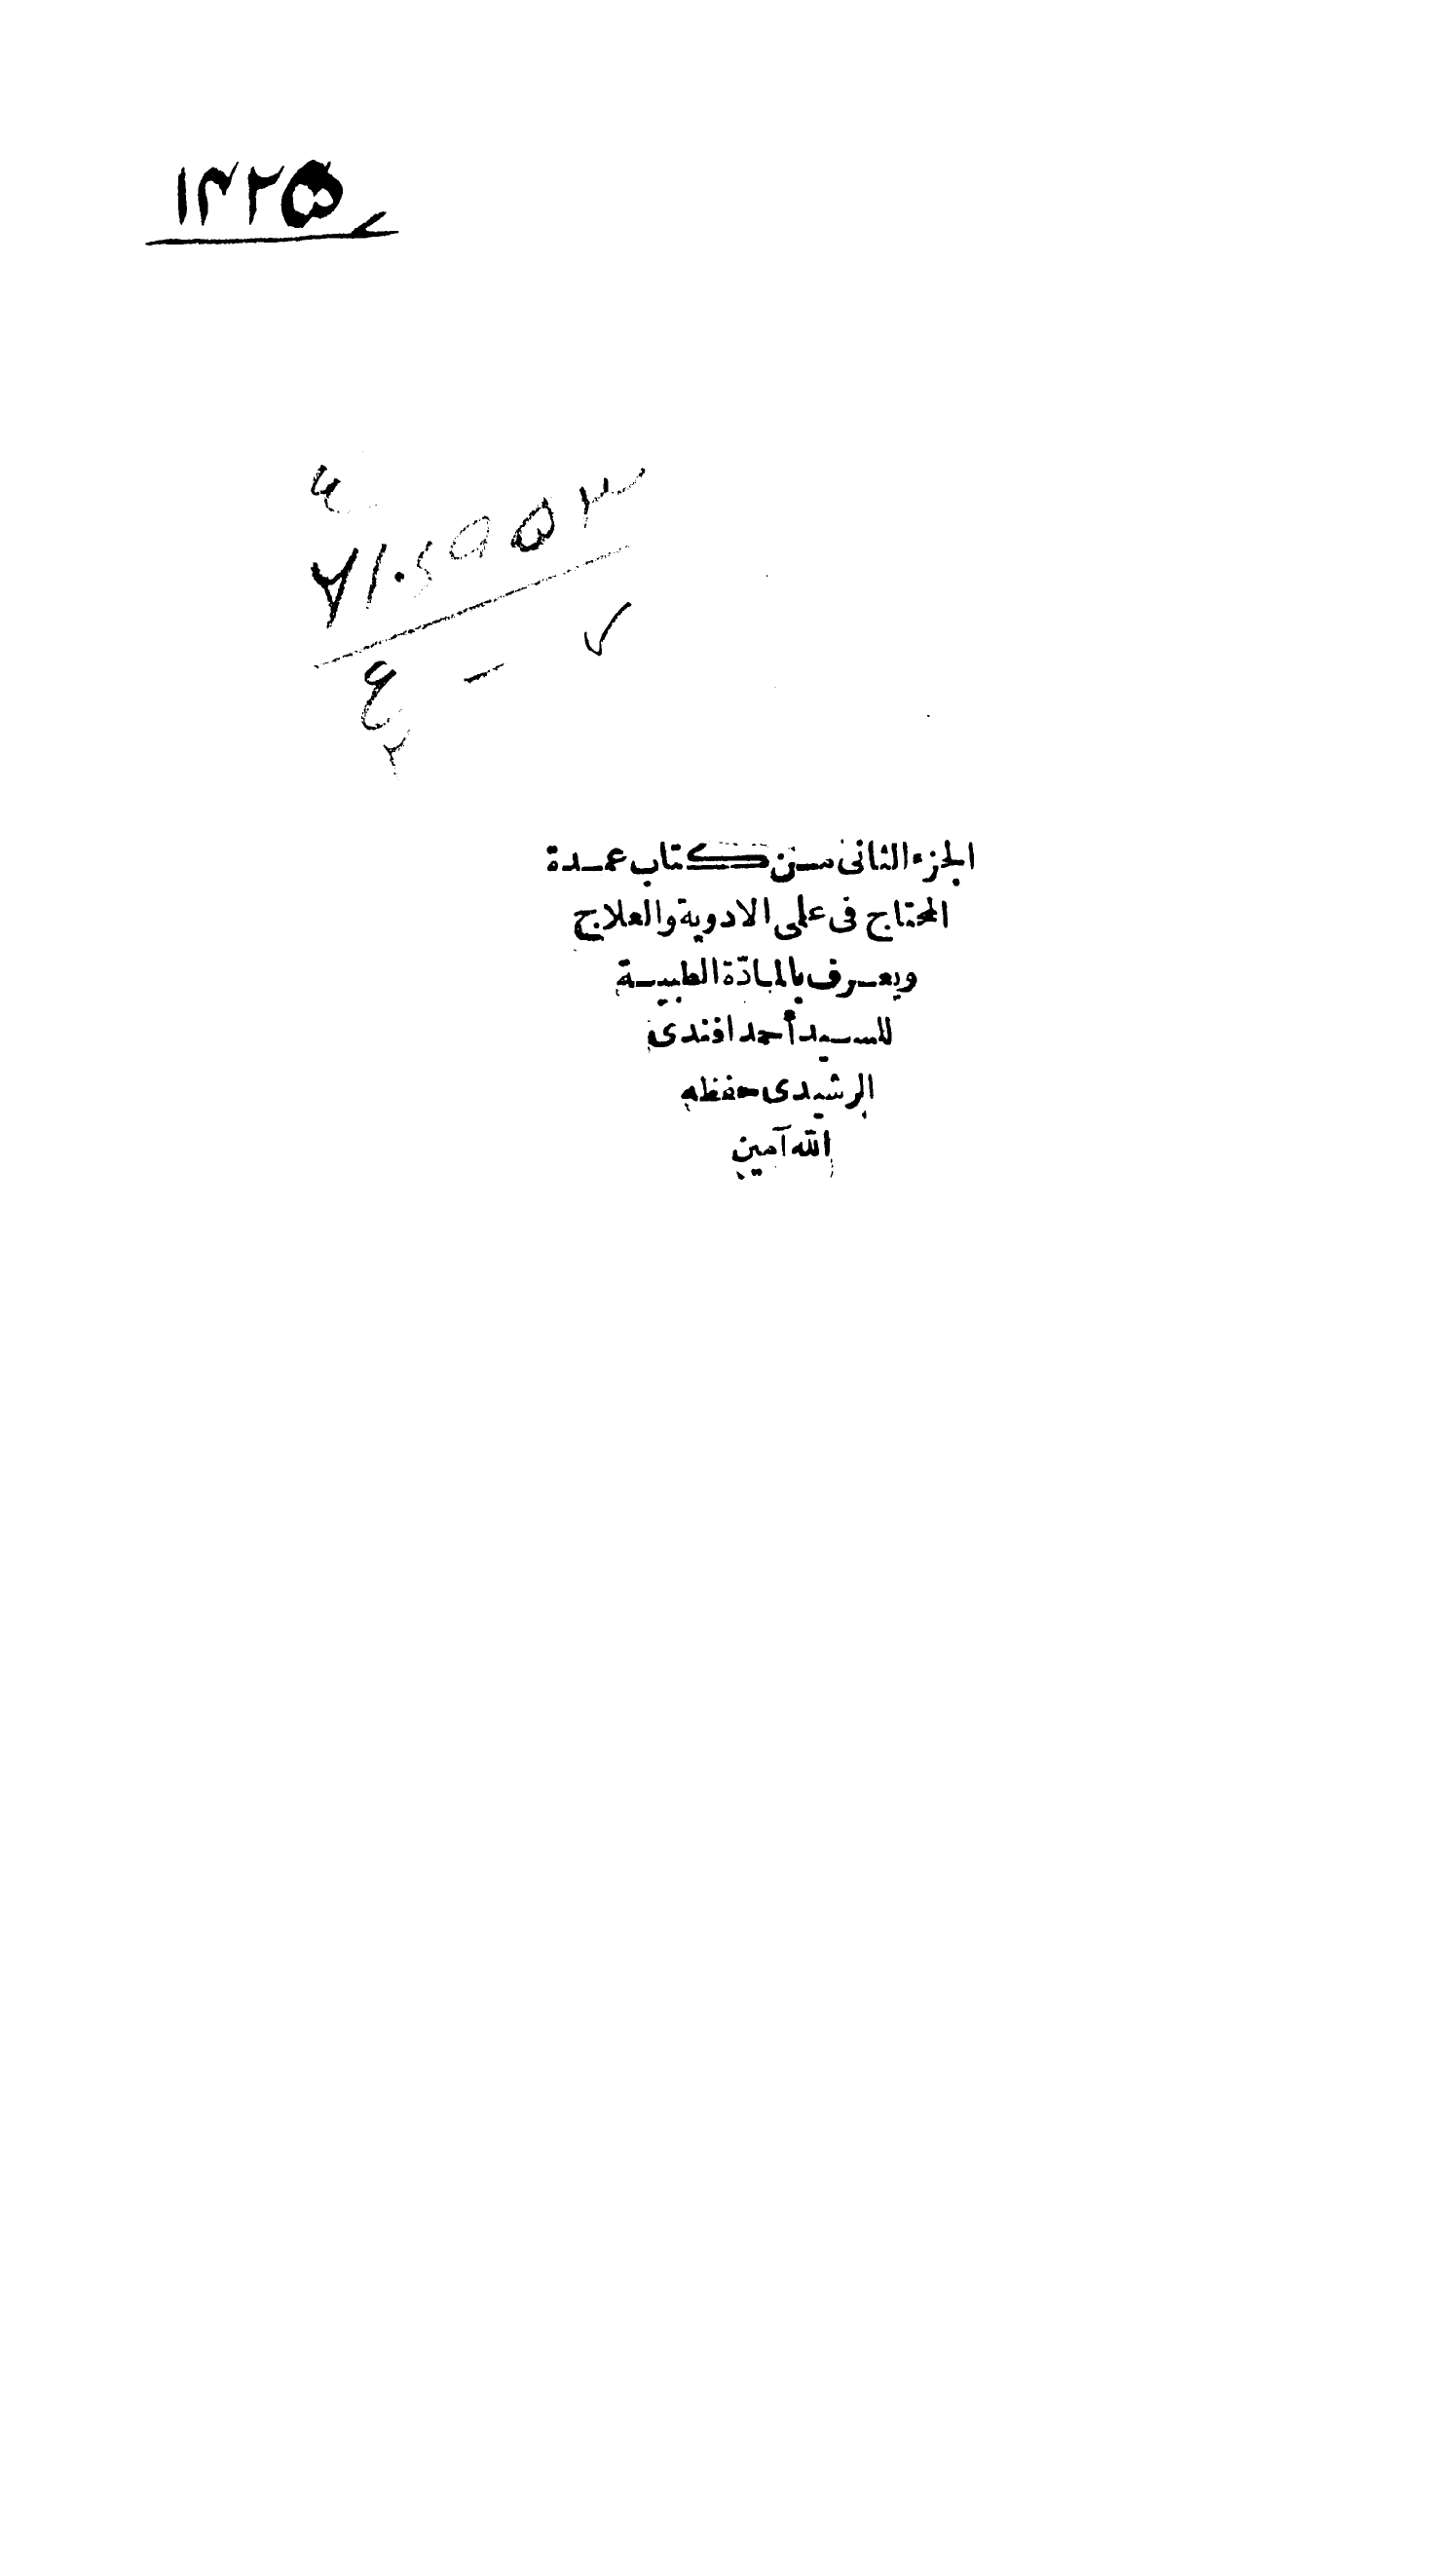 ١٣٢٥
الجزء الثانى من كتاب عمدة
المحتاج فى علمى الادوية والعلاج
ويعرف بالمادّة الطبية
للسيد أحمد افندى
الرشيدى حفظه
الله آمين